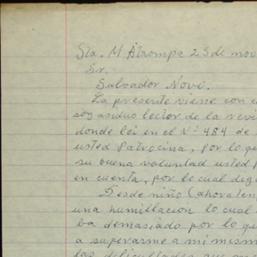 Sta. M Atrompa 23 de nov
Sr.
Salvador Novo.
La presente viene con e
soy asiduo lector de la revi
donde lei en el Nº 484 de
usted Patrocina, por lo q
su buena voluntad usted p
en cuenta, por lo cual dig
Desde niño (ahora ten
una humillacion lo cual
ba demasiado por lo q
a superarme a mi mism
las dificultades que